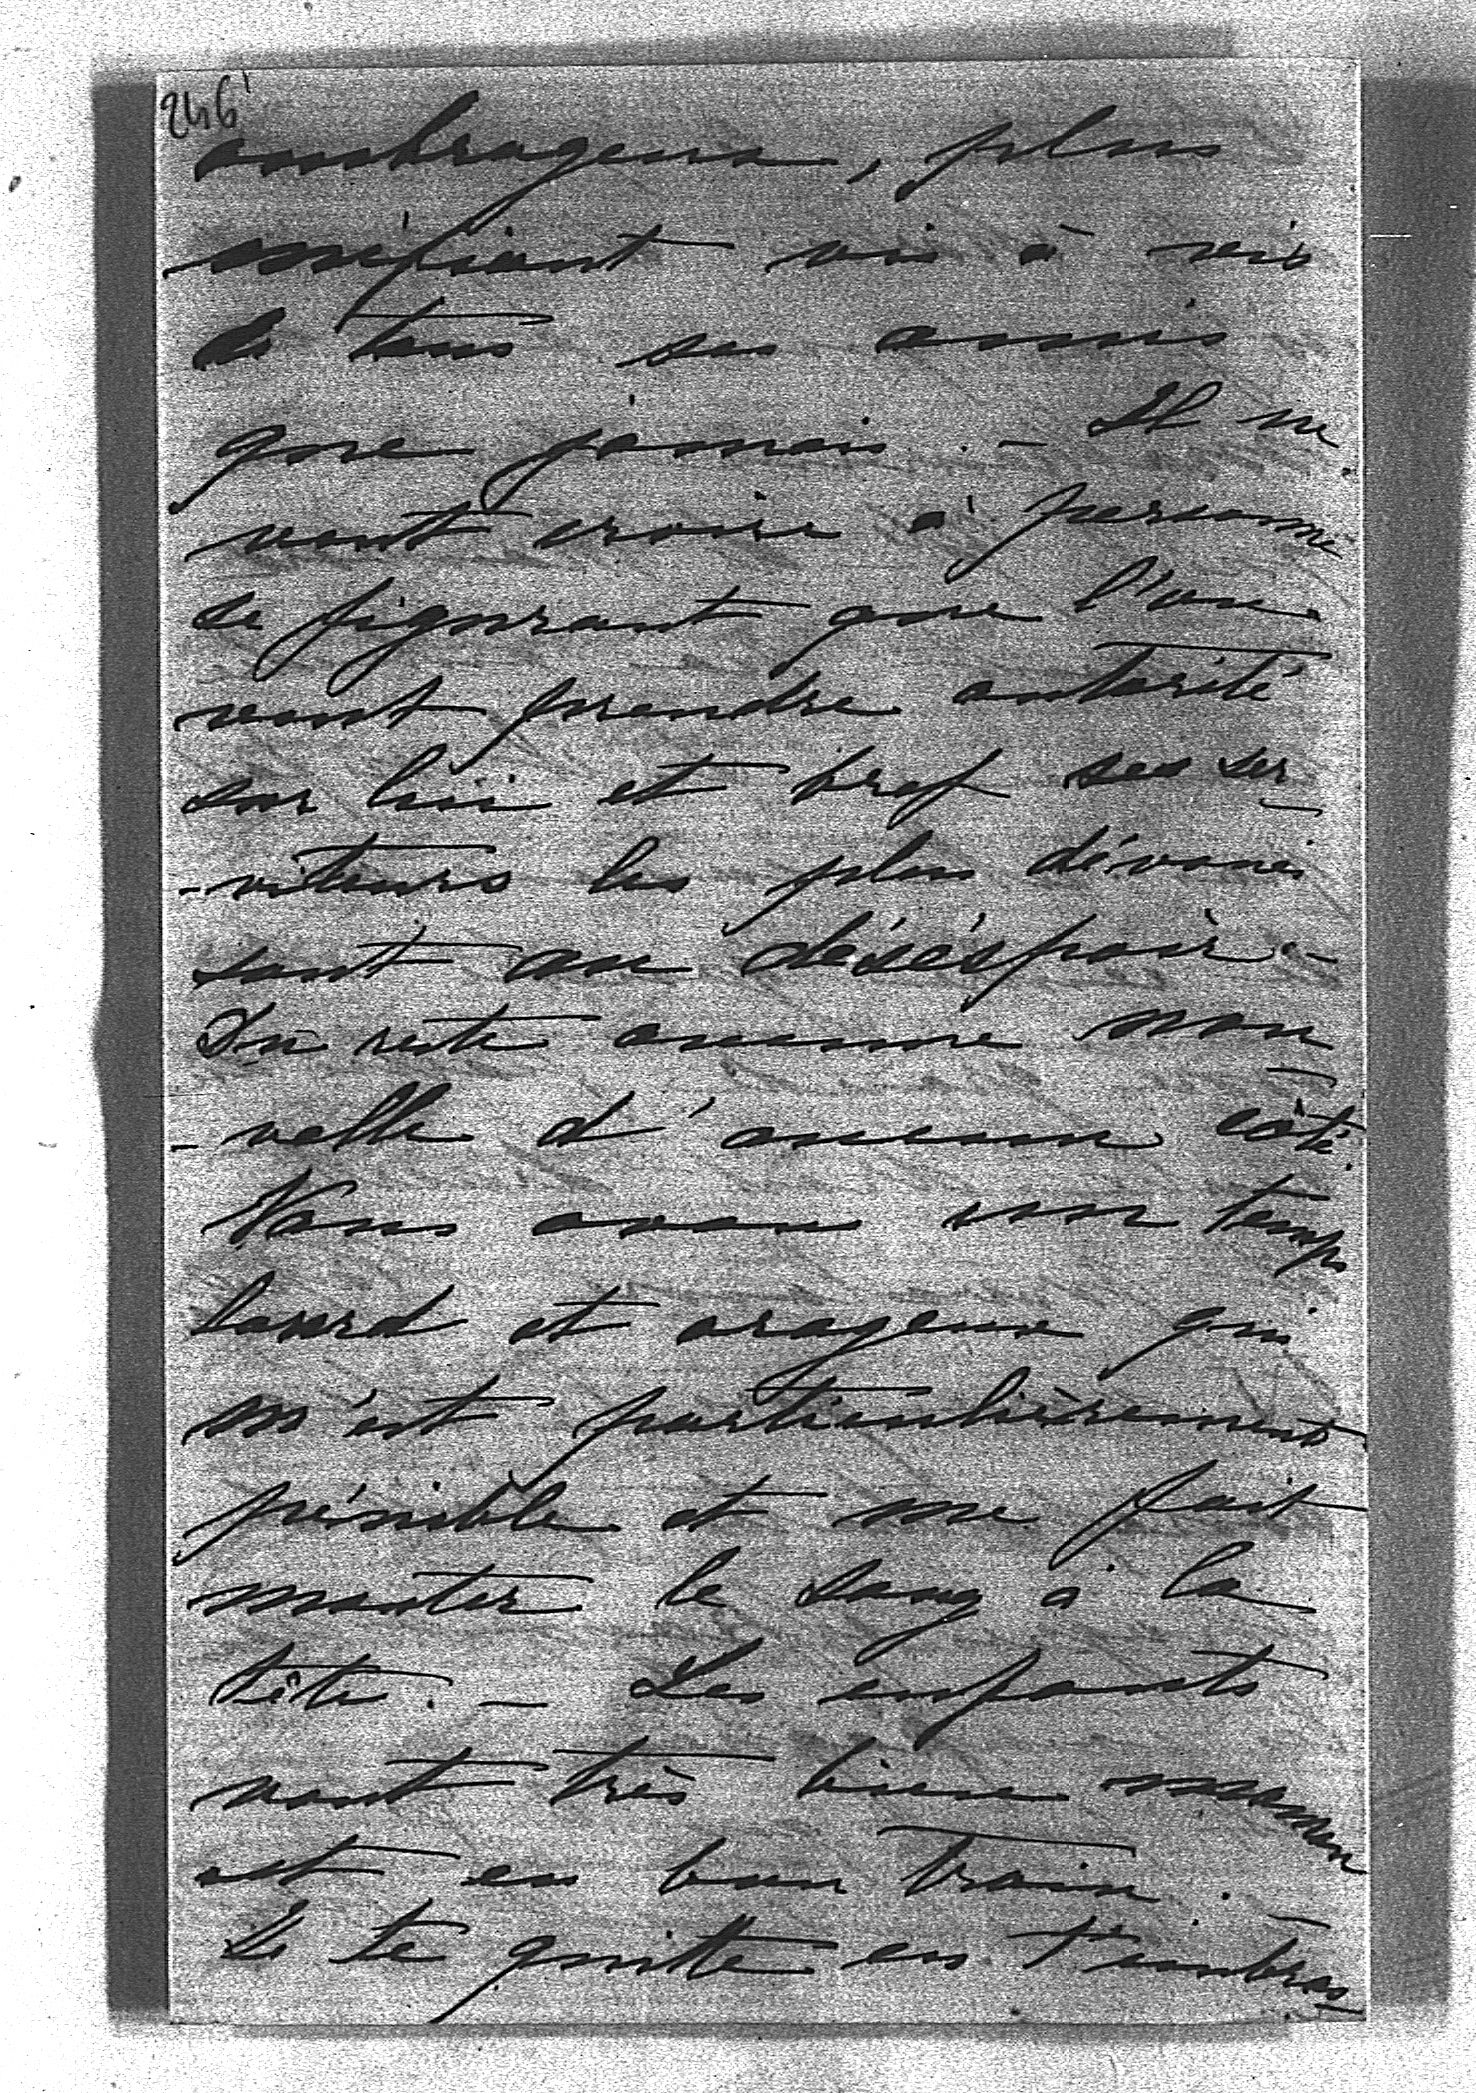 246
ombrageux, plus
méfiant vis à vis
de tous ses amis
que jamais. - Il ne
veut croire à personne
se figurant que l'on
veut prendre autorité
sur lui et bref ses ser-
-viteurs les plus dévoués
sont au désespoir -
Du reste aucune nou
-velle d'aucun côté.
Nous avons un temps
lourd et orageux qui
m'est particulièrement
pénible et me fait
monter le sang à la
tête. - Les enfants
vont très bien maman
est en bon train.
Je te quitte en t'embras-